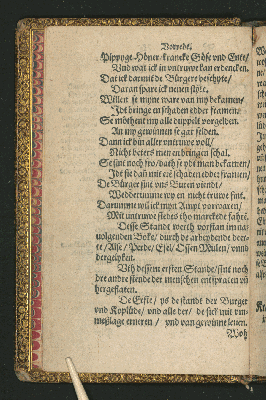 Vorrede.
Pipppge Höner/ krancke Göse vnd Ente/
Vnd wat ick in vntruwe kan erdencken.
Dat ick darmede de Bürgers beschyte/
Daran spare ick nenen flyte.
Willen se myne ware van my bekamen/
Idt bringe en schaden edder framen/
Se möthent my alle duppelt vorgelden.
An my gewinnen se gar selden.
Dann ick bin aller vntruwe voll/
Nicht beters men en bringen schal.
Se sint noch fro/ dath se ydt men bekamen/
Idt sie dat mit en schaden edder framen/
De Bürger sint vns Buren viendt/
Wedderumme wy en nicht truwe sint.
Darumme wil ick myn Knapt vorwaren/
Mit vntruwe stedes tho marckede fahrē.
Desse Standt werth vorstan im na=
uolgenden Boke/ durch de arbeydende deer=
te/ Alse/ Perde/ Esel/ Ossen Mulen/ vnnd
dergelyken.
Vth dessem ersten Stande/ sint noch
dre andre stende der menschen entspraten vñ
hergeflaten.
De Erste/ ys de standt der Burger
vnd Koplüde/ vnd alle der/ de sick mit
erneren / vnd van gewinne leuen.